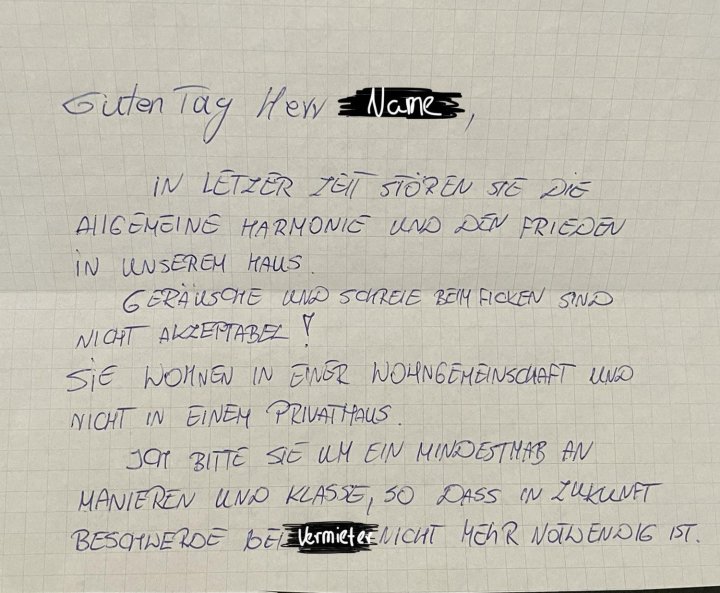 Guten Tag Herr Name,
IN LETZER ZEIT STÖREN SIE DIE
AllGEMEINE HARMONIE UND DEN FRIEDEN
IN UNSEREM HAUS.
GERÄUSCHE UND SCHREIE BEIM FICKEN SIND
NICHT AKZEPTABEL!
SIE WOHNEN IN EINER WOHNGEMEINSCHAFT UND
NICHT IN EINEM PRIVATHAUS.
ICH BITTE SIE UM EIN MINDESTMAß AN
MANIEREN UND KLASSE, SO DASS IN ZUKUNFT
BESCHWERDE BEI Vermieter NICHT MEHR NOTWENDIG IST.